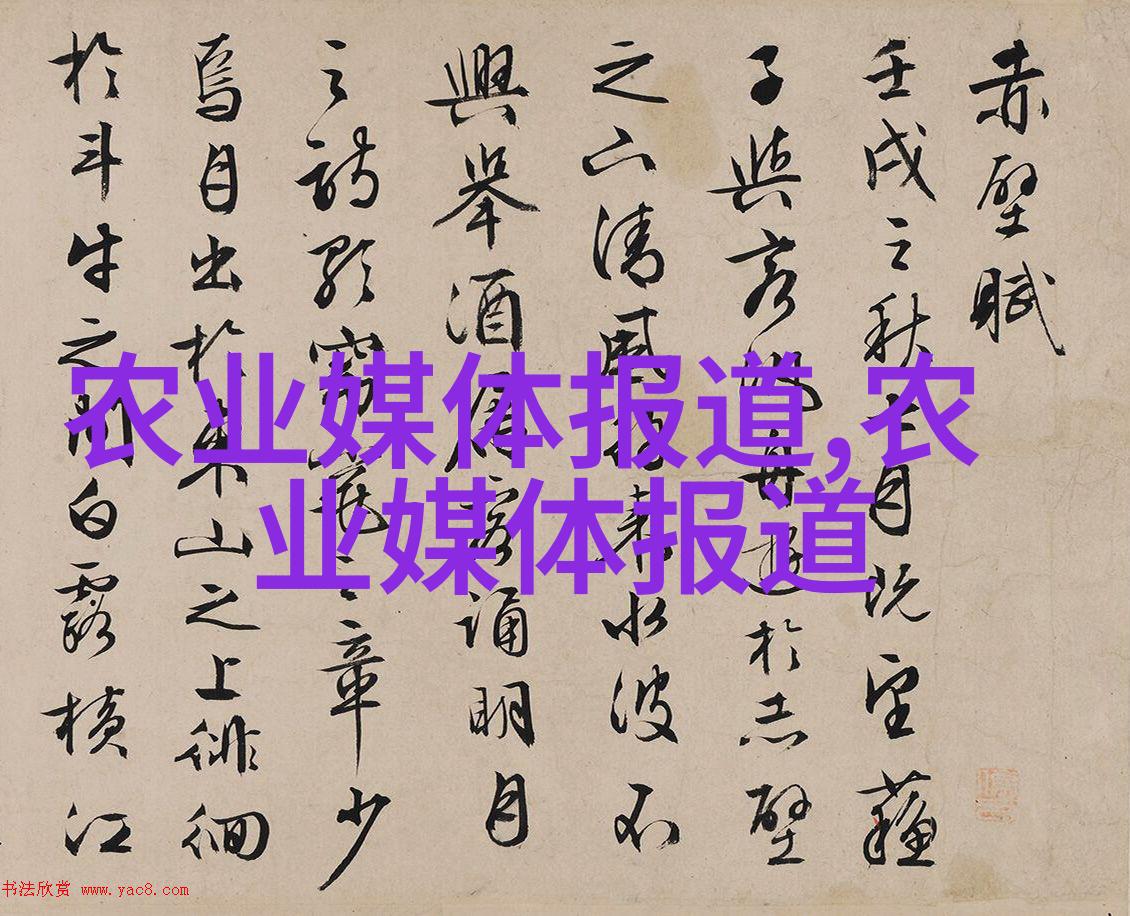 赤壁賦
壬戌之秋七月既望蘇
子與客泛舟遊於赤壁
之下清風徐來水波不
興舉酒屬客誦明月
之詩歌窈窕之章少
焉月出於東山之上徘徊
於斗牛之間白露橫江
农业媒体报道,农
业媒体报道
书法欣赏 www.yac8.com